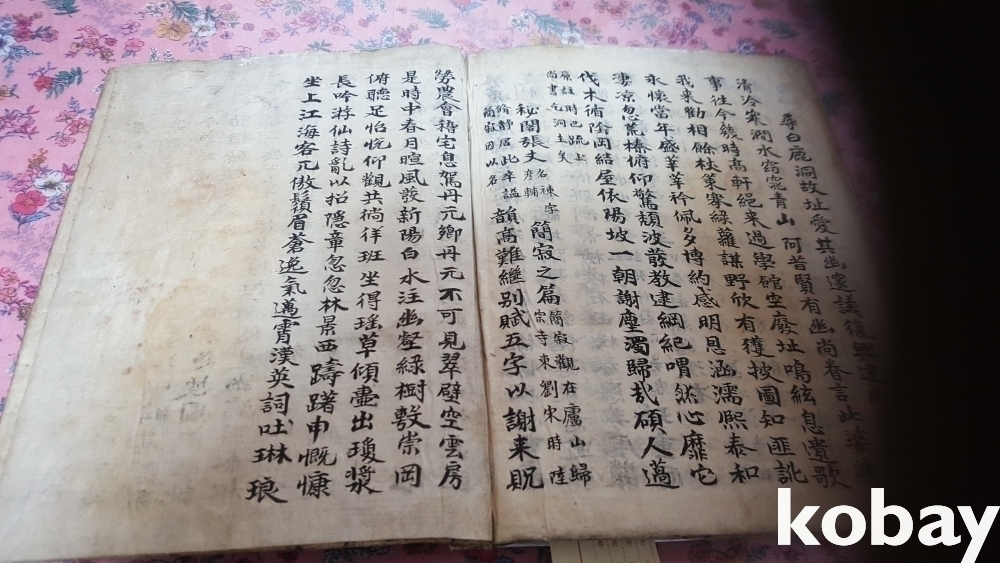 白鹿洞故址愛其幽邃議復興
清冷寒澗水窈窕青山阿昔賢有幽尚眷言此婆娑
事往今幾時高軒絕来過學館空廢址鳴絃息遺歌
我来勸相餘杖策搴綠蘿謀野欣有獲披圖知匪訛
永懷當年盛莘莘衿佩多博約感明恩涵濡熙泰和
凄凉忽荒榛俯仰驚頹波發教逮綱紀喟然心靡它
伐木循陰岡結屋依陽坡一朝謝塵濁歸哉碩人薖
原註時已疏上
尚書乞洞主矣
秘閣張丈名棟字彥輔簡寂之篇簡寂觀在廬山歸宗寺東劉宋時陸
脩静居此卒謚簡寂因以名韻高難繼別賦五字以謝来貺
勞農會稽宅息駕丹元鄉丹元不可見翠壁空雲房
是時中春月暄風發新陽白水注幽壑綠樹敷崇岡
俯聽足怡悅仰觀共徜徉班坐得瑤草傾壺出瓊漿
長吟游仙詩亂以招隱章忽忽林景西躊躇申慨慷
坐上江海客兀傲鬚眉蒼逸氣邁霄漢英詞吐琳琅
kobay